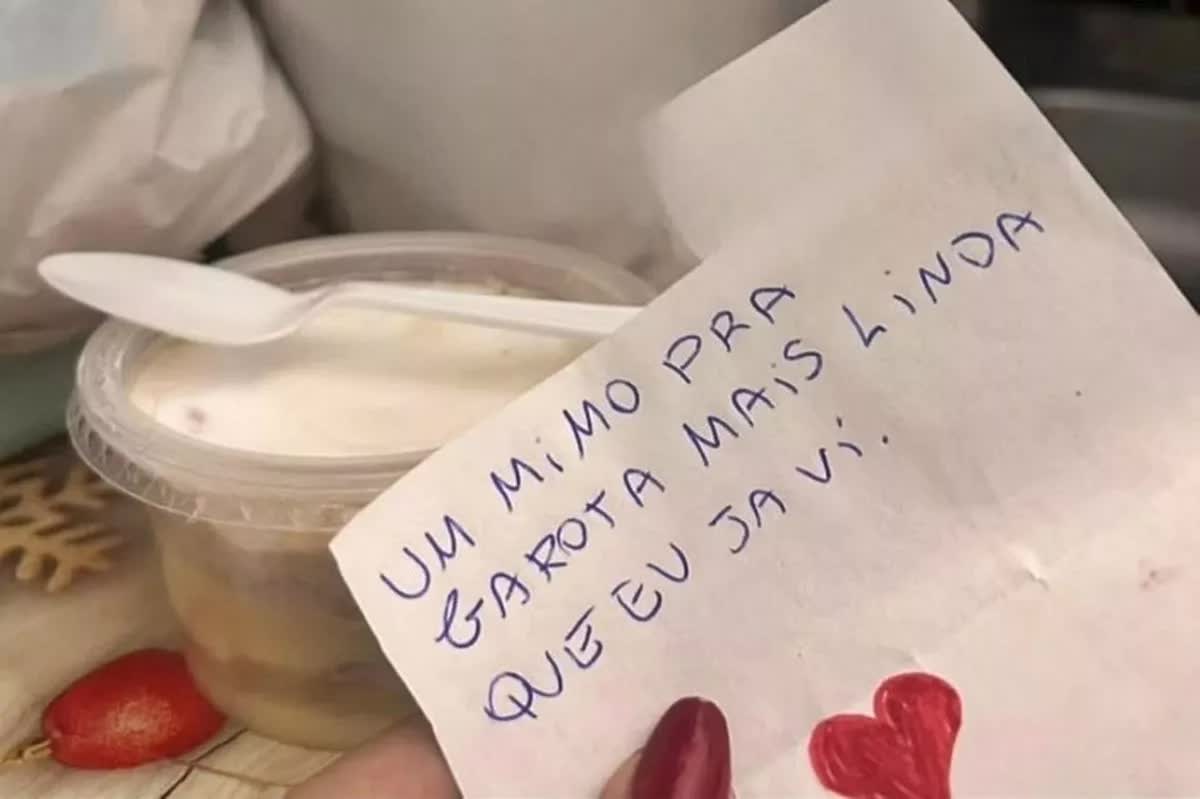 UM MiMO PRA
GAROTA MAiS LiNDA
QUE EU JA Vi.